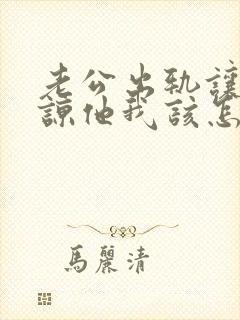 老公出轨讓
諒他我該怎
馬麗清